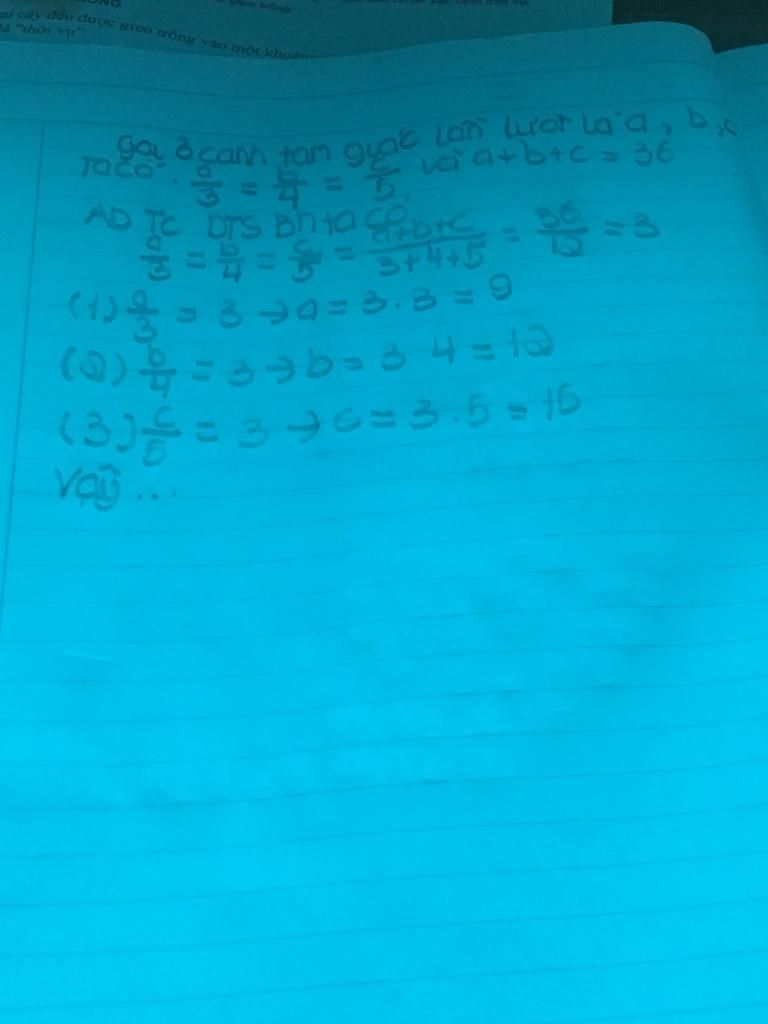 gieo trồng.
ại cây đều được gieo trồng vào một khoảng
là "thời vụ"
Gọi 3 cạnh tam giác lần lượt là a, b, c
Ta có: a/3 = b/4 = c/5 và a+b+c = 36
AD TC DTS BN ta có
a/3 = b/4 = c/5 = a+b+c/3+4+5 = 36/12 = 3
(1) a/3 = 3 → a = 3.3 = 9
(2) b/4 = 3 → b = 3 4 = 12
(3) c/5 = 3 → c = 3.5 = 15
Vậy ...